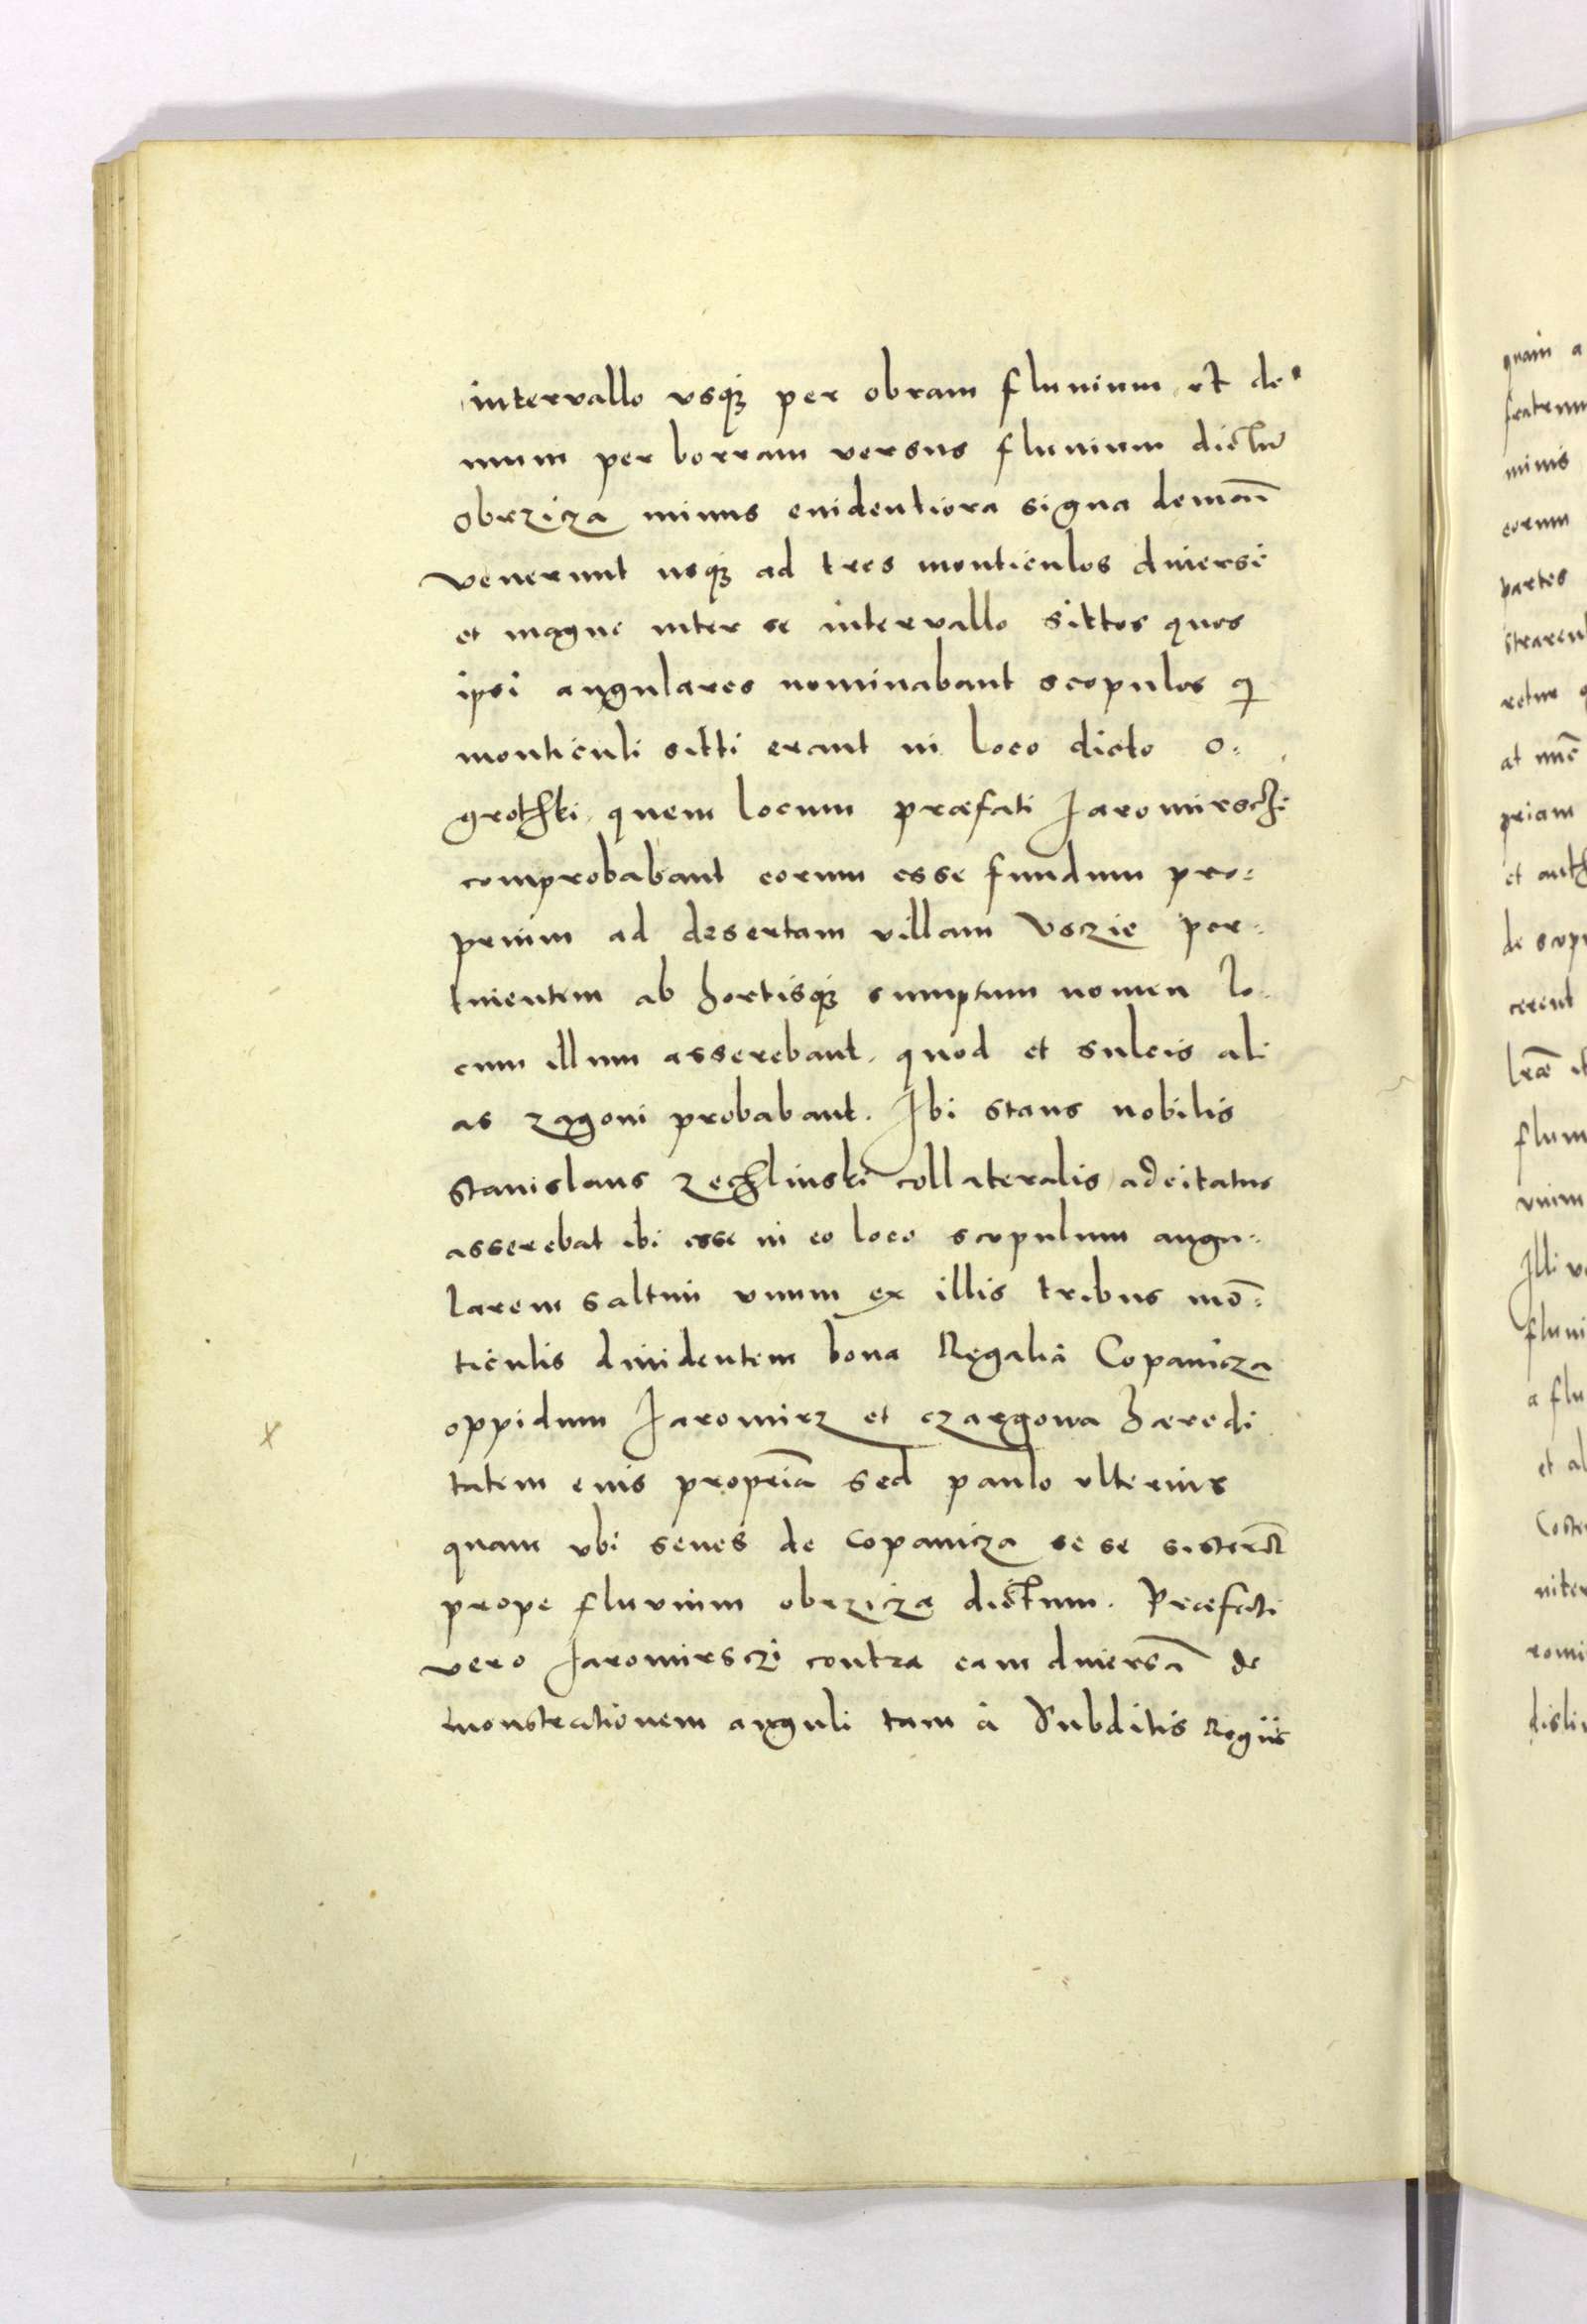 intervallo vsq₃ per obram fluuium et de⸗
mum per borram versus fluuium dictū
Obrzicza minus euidentiora signa demān
venerunt usq₃ ad tres monticulos diuersi
et magno inter se intervallo sittos quos
ipsi angulares nominabant scopulos qi
monticuli sitti erant in loco dicto o⸗
grothki quem locum præfati Jaromirschi
comprobabant eorum esse fundum pro⸗
prium ad desertam villam Vszie per⸗
tinentem ab hortisq₃ sumptum nomen lo
cum illum asserebant quod et sulcis ali
as zagoni probabant. Jbi stans nobilis
Stanislaus Zechlinski collateralis adcitatus
asserebat ibi esse in eo loco scopulum angu⸗
larem saltim vnum ex illis tribus mō⸗
ticulis diuidentem bona Regalia Copanicza
oppidum Jaromirz et czargowa hæredi
tatem eius propriā sed paulo vlterius
quam vbi senes de Copanicza se se sisterēt
prope fluvium obrzicza dictum. Præfati
vero Jaromirsczi contra eam diuersā de
monstrationem anguli tam à Subditis Regiis
quam a
fratrum
minis
eorum
partes
retur q
at nūc
priam
et auth
de scop
cerent
flum
Illi v
fluui
a flu
et al
niter
romi